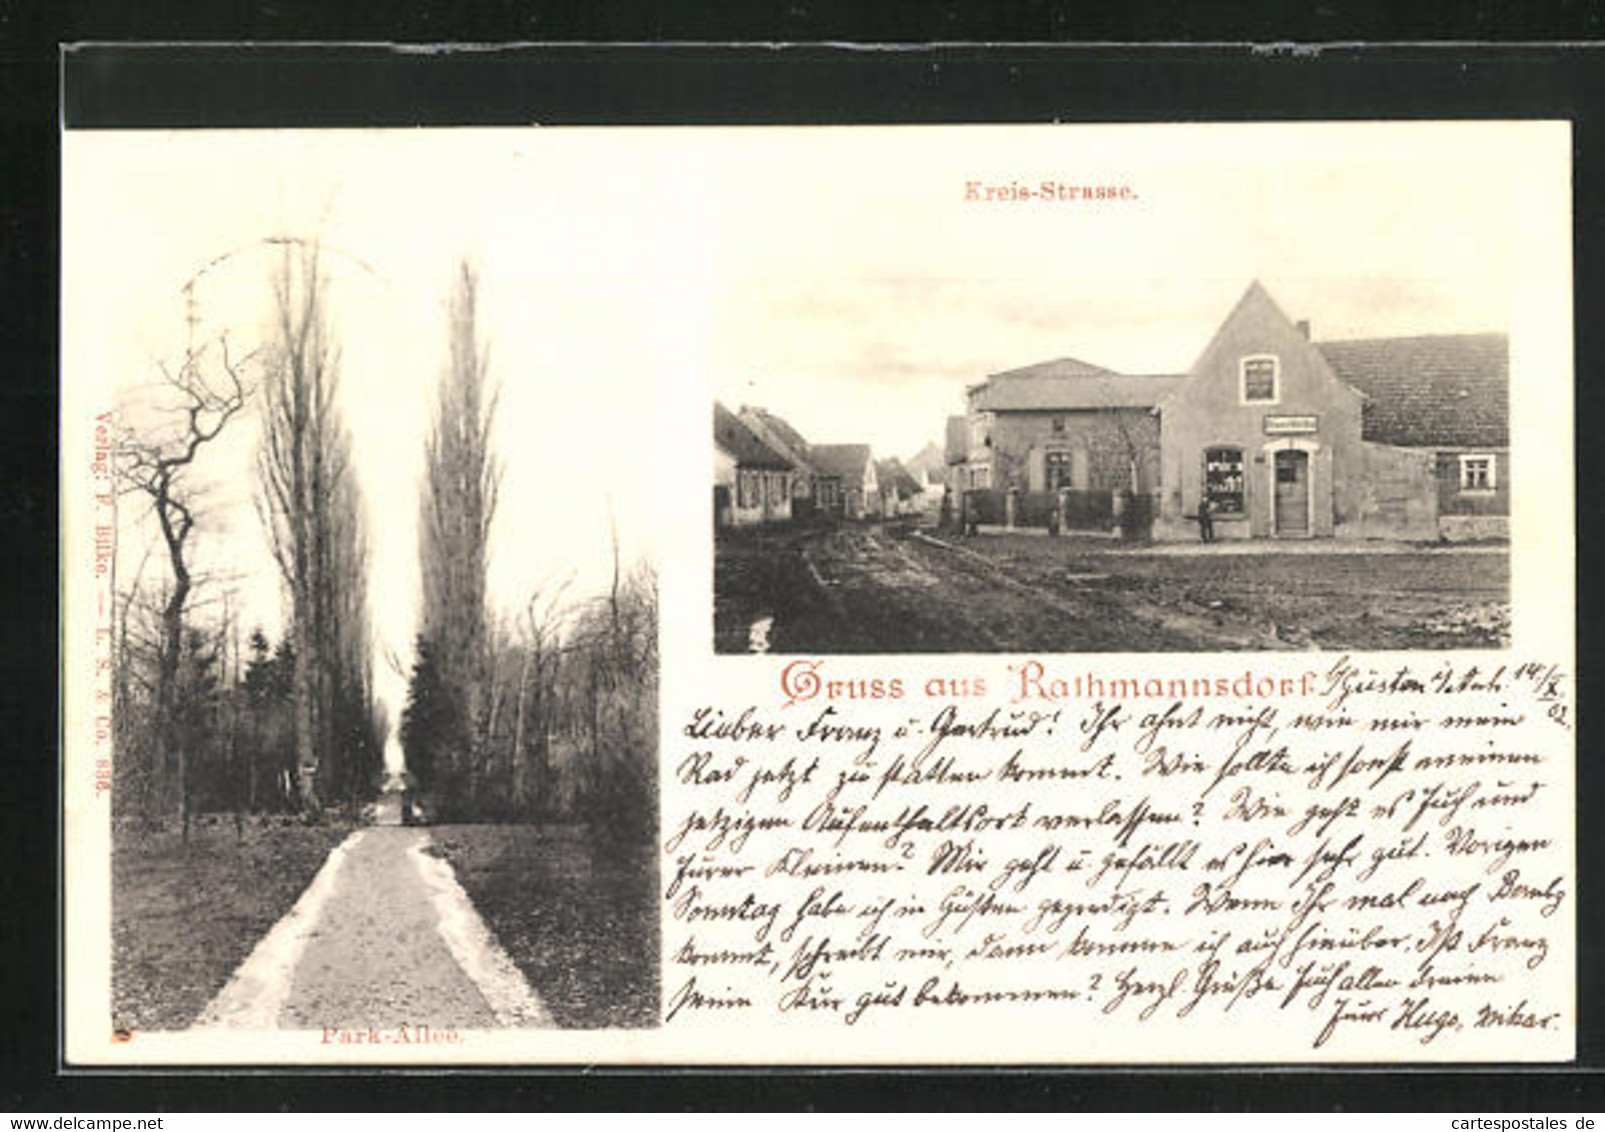 Kreis-Strasse.
Verlag: F. Bilke. — L. S. & Co. 836.
Park-Allee.
Gruss aus Rathmannsdorf.
Güsten 14/X.
02.
Lieber Franz u. Gertrud! Ihr ahnt nicht, wie mir mein
Rad jetzt zu statten kommt. Wie sollte ich sonst meinen
jetzigen Aufenthaltsort verlassen? Wie geht es Euch und
Eurer Kleinen? Mir geht u. gefällt es hier sehr gut. Vorigen
Sonntag habe ich in Güsten gepredigt. Wenn Ihr mal nach Bernbg
kommt, schreibt mir, dann komme ich auch hinüber. Ist Franz
seine Kur gut bekommen? Herzl. Grüße Euch allen dreien
Euer Hugo, Vikar.
www.cartespostales.de
cartespostales de